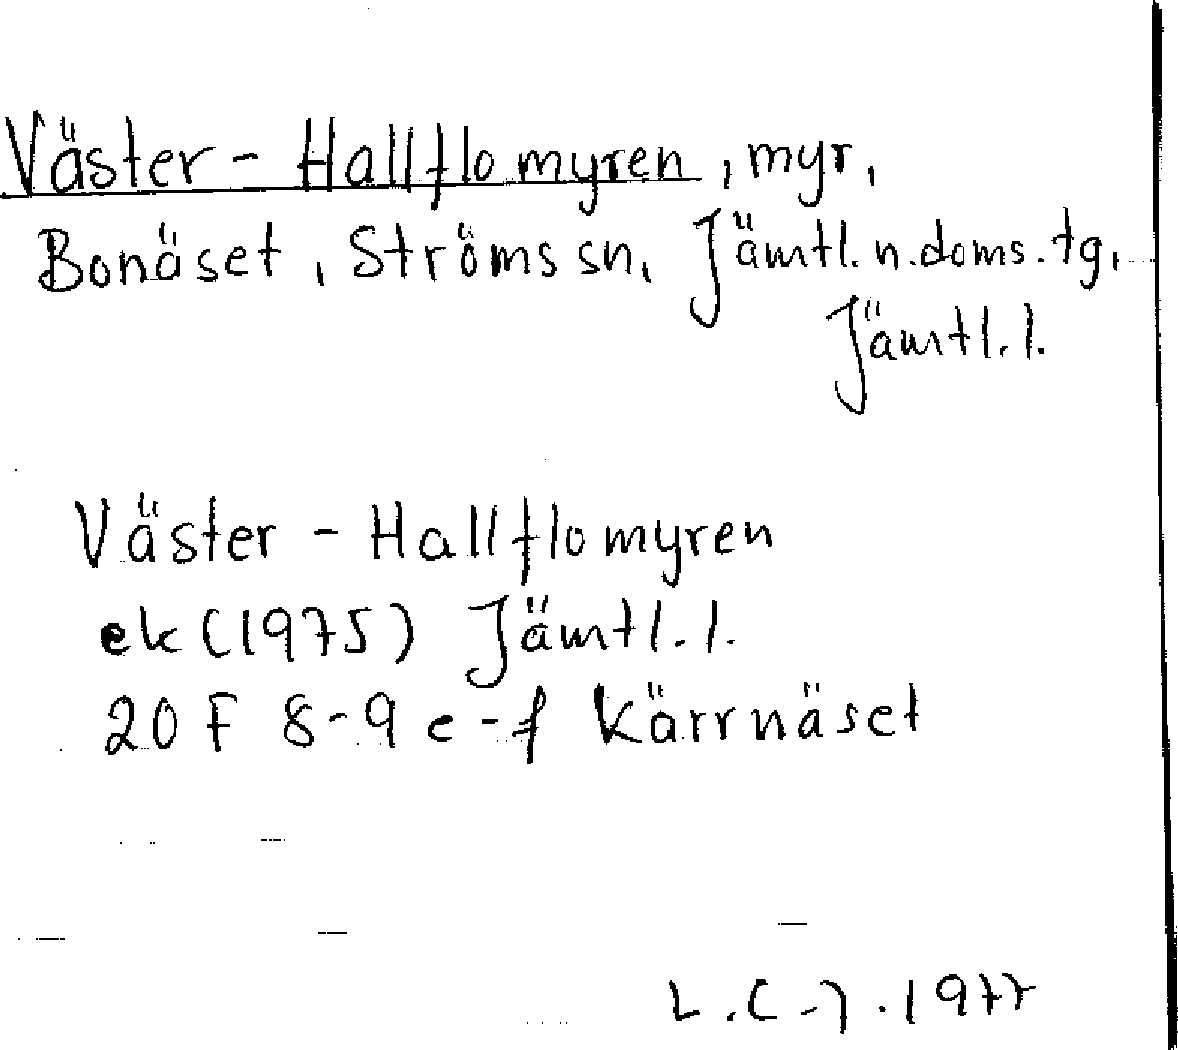 Väster-Hallflomyren, myr,
Bonäset, Ströms sn, Jämtl.n.doms.tg,
Jämtl.l.
Väster-Hallflomyren
ek (1975) Jämtl.l.
20 F 8-9 e-f Kärrnäset
L.C-7.1977